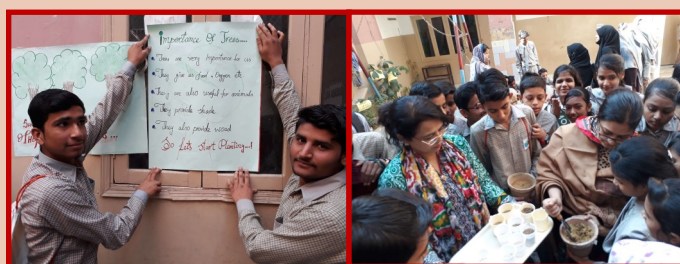 Importance Of Trees....
Trees are very importance for us
They give us food, oxygen etc
They are also useful for animals
They provide shade
They also provide wood
So Lets Start Planting...!